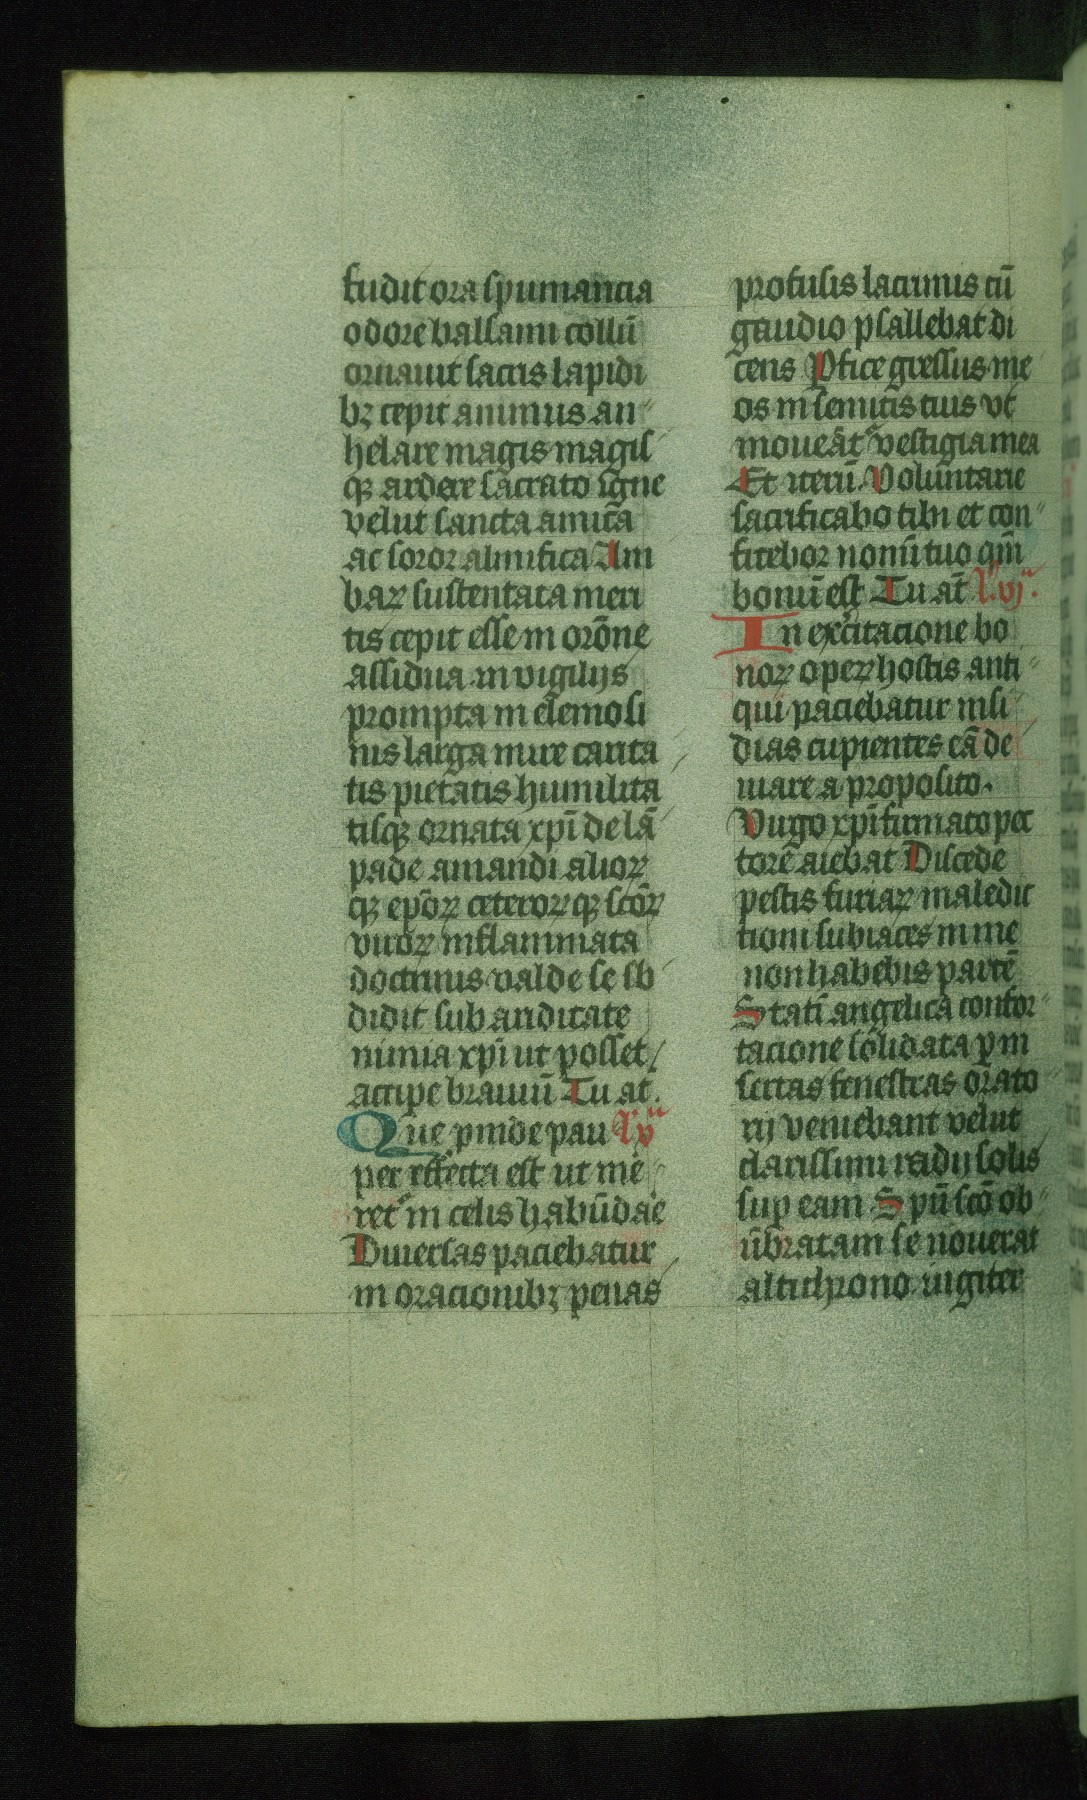 fudit ora spumancia
odore balsami collū
ornauit sacris lapidi
bꝫ cepit animus an
helare magis magis
qꝫ ardere sacrato igne
velut sancta amica
ac soror almifica Am
baꝝ sustentata meri
tis cepit esse in orōne
assidua in vigilijs
prompta in elemosi
nis larga mire carita
tis pietatis humilita
tisqꝫ ornata xpī de lā
pade amandi alioꝝ
qꝫ epōꝝ ceteroꝝqꝫ scōꝝ
viroꝝ inflammata
doctrinis valde se sb
didit sub ariditate
nimia xpī ut posset
accipe brauiū Tu at
Que pinde pau l' v
per effecta est ut me
ret in celis habūdae
Diuersas paciebatur
in oracionibꝫ penas
profusis lacrimis cū
gaudio psallebat di
cens Pfice gressus me
os in semitis tius vt
moueāt vestigia mea
Et iterū Voluntarie
sacrificabo tibi et con
fitebor nomī tuo qm̄
bonū est Tu at̄ l' vj
In excitacione bo
noꝝ operꝝ hostis anti
qui paciebatur insi
dias cupientes eā de
uiare a proposito
Virgo xpī firmato pec
tore aiebat Discede
pestis furiaꝝ maledic
tioni subiaces in me
non habebis partē
Statī angelica confor
tacione solidata p̄ in
sertas fenestras orato
rij veniebant velut
clarissimi radij solis
sup eam Spū scō ob
ūbratam se nouerat
altithrono iugiter